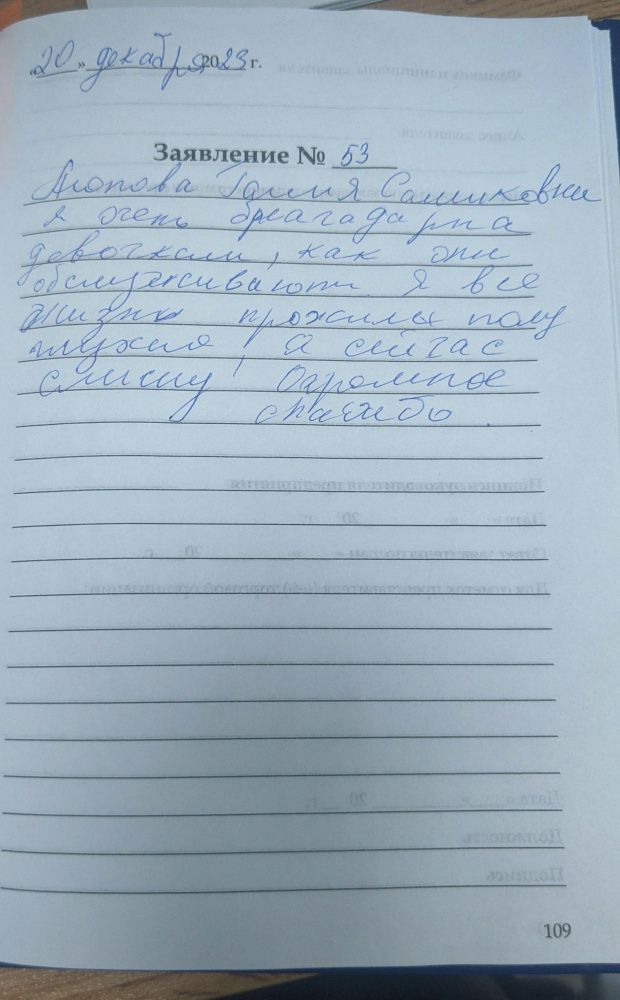 «20» декабря 2023 г.
Заявление № 53
Галия
я очень благадарна
девочкам, как они
обслуживают. Я все
жизнь прожила полу
глухая, а сейчас
слышу Огромное
спасибо.
109